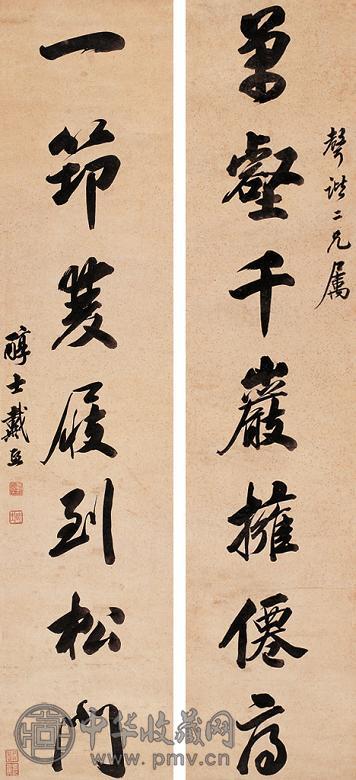 聲諧二兄屬
萬壑千巖擁僊
一筇雙屐到松門
醇士戴熙
中华收藏网
www.pmv.cn